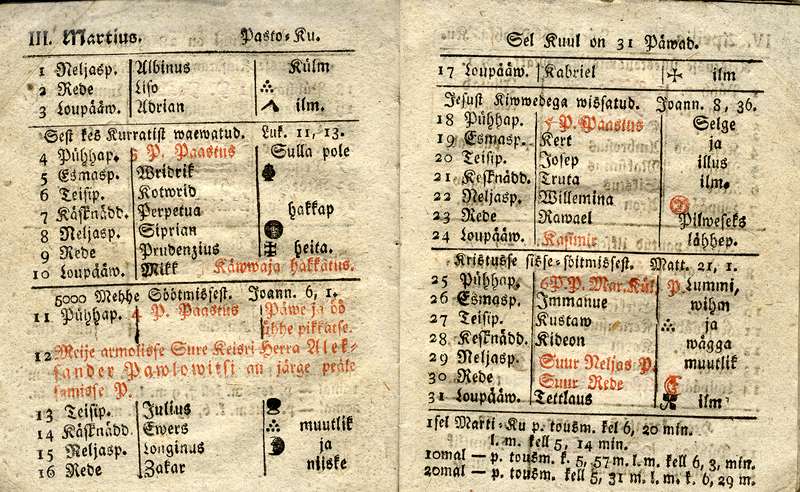 III. Martius. Pasto-Ku.
1 Neljasp. Albinus Külm
2 Rede Liso
3 Loupääw. Adrian ilm.
Sest kes Kurratist waewatud. Luk. 11, 13.
4 Pühhap. P. Paastus Sulla pole
5 Esmasp. Wridrik
6 Teisip. Kotwrid
7 Käsknädd. Perpetua hakkap
8 Neljasp. Siprian
9 Rede Prudenzius heita.
10 Loupääw. Mikk Käwwaja hakkatus.
5000 Mehhe Söötmissest. Joann. 6, 1.
11 Pühhap. 4 P. Paastus Päwe ja öö
ühhe pikkatse.
12 Meije armolisse Sure Keisri Herra Alek-
sander Pawlowitsi au järge peäle
samisse P.
13 Teisip. Julius
14 Käsknädd. Ewers muutlik
15 Neljasp. Longinus ja
16 Rede Zakar niiske
Sel Kuul on 31 Päwad.
17 Loupääw. Kabriel ilm
Jesust Kiwwedega wissatud. Joann. 8, 36.
18 Pühhap. P. Paastus Selge
19 Esmasp. Kert ja
20 Teisip. Josep illus
21 Kesknädd. Truta ilm.
22 Neljasp. Willemina
23 Rede Rawael Pilweseks
24 Loupääw. Kasimir lähhep.
Kristusse sisse-söitmissest. Matt. 21, 1.
25 Pühhap. 6 P P. Mar. Kül. P. Lummi,
26 Esmasp. Immanue wihm
27 Teisip. Kustaw ja
28 Kesknädd. Kideon wägga
29 Neljasp. Suur Neljas P. muutlik
30 Rede Suur Rede
31 Loupääw. Tettlaus ilm
1sel Marti-Ku p. tousm. kel 6, 20 min.
l. m. kell 5, 14 min.
10mal — p. tousm. k. 5, 57 m. l. m. kell 6, 3, min.
20mal — p. tousm. kell 5, 31 m. l. m. k. 6, 29 m.